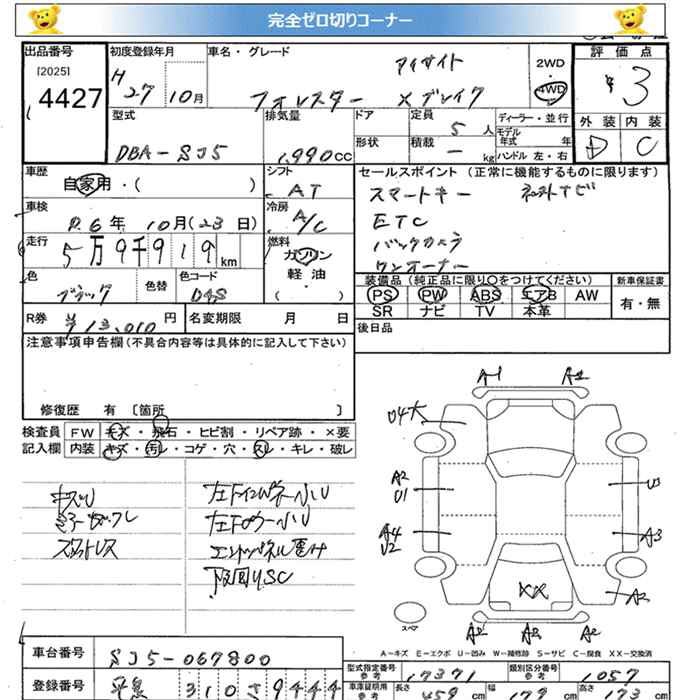 完全ゼロ切りコーナー
出品番号 初度登録年月 車名・グレード 評価点
[2025] H アイサイト 2WD
4427 27 10月 フォレスター Xブレイク 4WD 3
型式 排気量 ドア 定員 ディーラー・並行 外装 内装
5人 モデル年式 年
DBA-SJ5 1,990cc 形状 積載 - kg ハンドル 左・右 D C
車歴 シフト セールスポイント (正常に機能するものに限ります)
自家用・( ) AT スマートキー
車検 冷房 ETC
R6年 10月(23日) A/C バックカメラ
走行 燃料 ワンオーナー
5万9千919km ガソリン
色 色替 色コード 軽油 装備品 (純正品に限り○をつけてください) 新車保証書
ブラック D4S ( ) PS PW ABS エアB AW 有・無
SR ナビ TV 本革
R券 ¥13,010円 名変期限 月 日 後日品
注意事項申告欄(不具合内容等は具体的に記入して下さい)
修復歴 有 [箇所 ]
検査員 FW キズ・飛石・ヒビ割・リペア跡・×要
記入欄 内装 キズ・汚レ・コゲ・穴・スレ・キレ・破レ
A-1 A2
U4大
A2 U1 U3
A4 U2 A3
XX A2
スペア A2 A2 A2
A-キズ E-エクボ U-凹み W-補修跡 S-サビ C-腐食 XX-交換済
車台番号 SJ5-067800 型式指定番号 参考 17371 類別区分番号 参考 1057
登録番号 310さ9444 車庫証明用 参考 長さ 459cm 幅 179cm 高さ 173cm